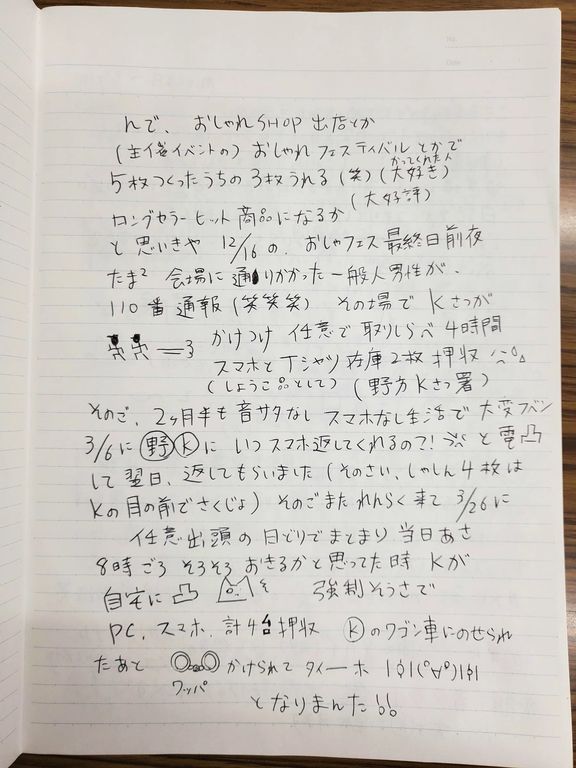 No.
Date
んで、おしゃれSHOP出店とか
(主催イベントの)おしゃれフェスティバルとかで
かってくれた人
5枚つくったうちの3枚うれる(笑)(大好き)
(大好評)
ロングセラーヒット商品になるか
と思いきや 12/16の、おしゃフェス最終日前夜
たま² 会場に通りかかった一般人男性が、
110番通報(笑笑笑) その場でKさつが
かけつけ 任意で取りしらべ4時間
スマホとTシャツ在庫2枚押収
(しょうこ品として) (野方Kさつ署)
そのご、2ヶ月半も音サタなし スマホなし生活で大変フベン
3/6に野Kにいつスマホ返してくれるので! と電凸
して翌日、返してもらいました(そのさい、しゃしん4枚は
Kの目の前でさくじょ) そのごまたれんらく来て3/26に
任意出頭の日どりでまとまり、当日あさ
8時ごろ そろそろおきるかと思ってた時 Kが
自宅に凸 強制そうさで
PC、スマホ、計4台押収 Kのワゴン車にのせられ
たあと かけられてタイーホ |φ|(°∀°)|φ|
ワッパ
となりまんた!!